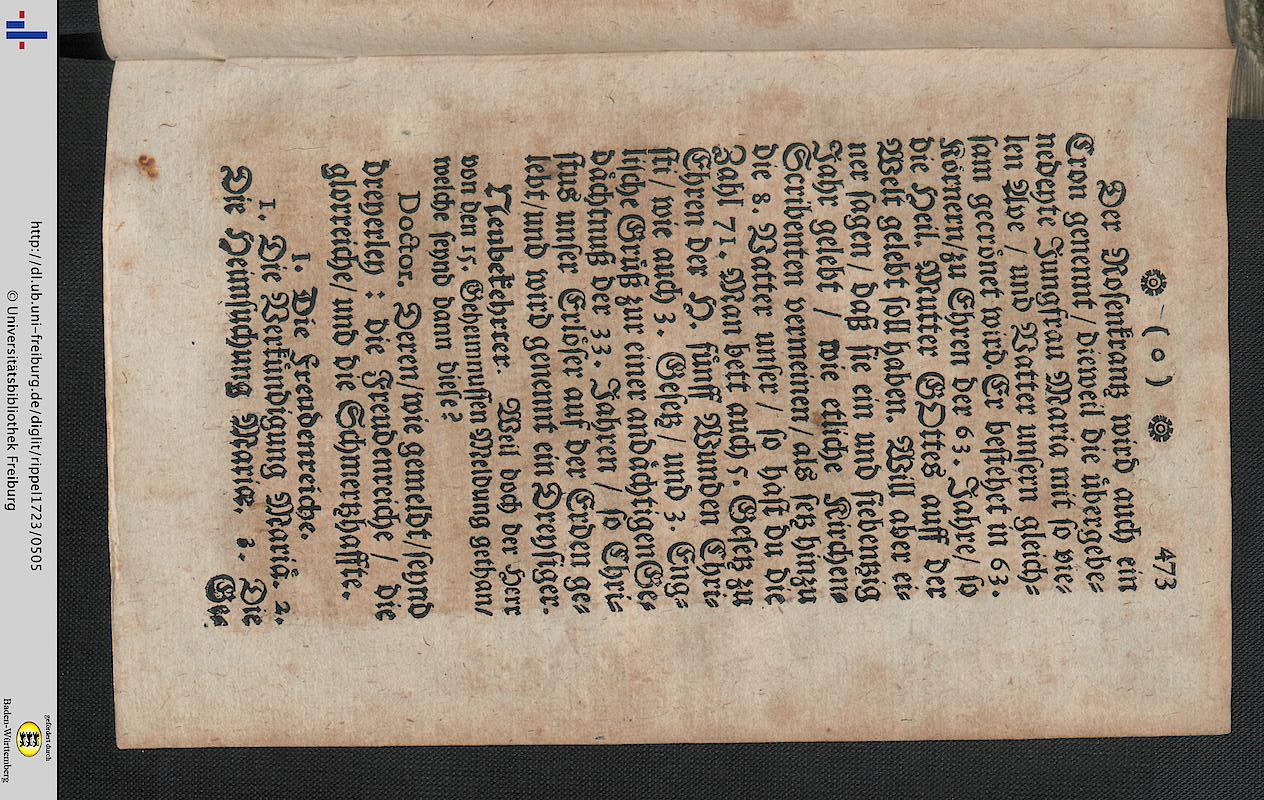 ( o ) 473
Der Rosenkrantz wird auch ein
Cron genennt / dieweil die übergebe-
nedeyte Jungfrau Maria mit so vie-
len Ave / und Vatter unsern gleich-
sam gecrönet wird. Er bestehet in 63.
Körnern / zu Ehren der 63. Jahre / so
die Heil. Mutter GOttes auff der
Welt gelebt soll haben. Will aber ei-
ner sagen / daß sie ein und siebentzig
Jahr gelebt / wie etliche Kirchen-
Scribenten vermeinen / als setz hinzu
die 8. Vatter unser / so hast du die
Zahl 71. Man bett auch 5. Gesetz zu
Ehren der H. fünff Wunden Chri-
sti / wie auch 3. Gesetz / und 3 Eng-
lische Grüß zur einer andächtigen Ge-
dächtnuß der 33. Jahren / so Chri-
stus unser Erlöser auf der Erden ge-
lebt / und wird genennt ein Dreysiger.
Neubekehrter. Weil doch der Herr
von den 15. Geheimnussen Meldung gethan /
welche seynd dann diese?
Doctor. Deren / wie gemeldt / seynd
dreyerley : die Freudenreiche / die
glorreiche / und die Schmertzhaffte.
I. Die Freudenreiche.
1. Die Verkündigung Mariä. 2.
Die Heimsuchung Mariæ. 3. Die
Ge-
http://dl.ub.uni-freiburg.de/diglit/rippel1723/0505
© Universitätsbibliothek Freiburg
gefördert durch
Baden-Württemberg